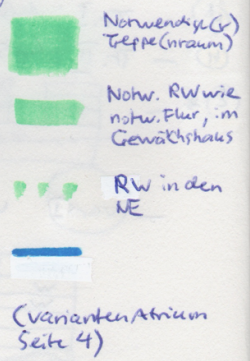 Notwendige(r)
Treppe(nraum)
Notw. RW wie
notw. Flur, im
Gewächshaus
RW in den
NE
(Varianten Atrium
Seite 4)